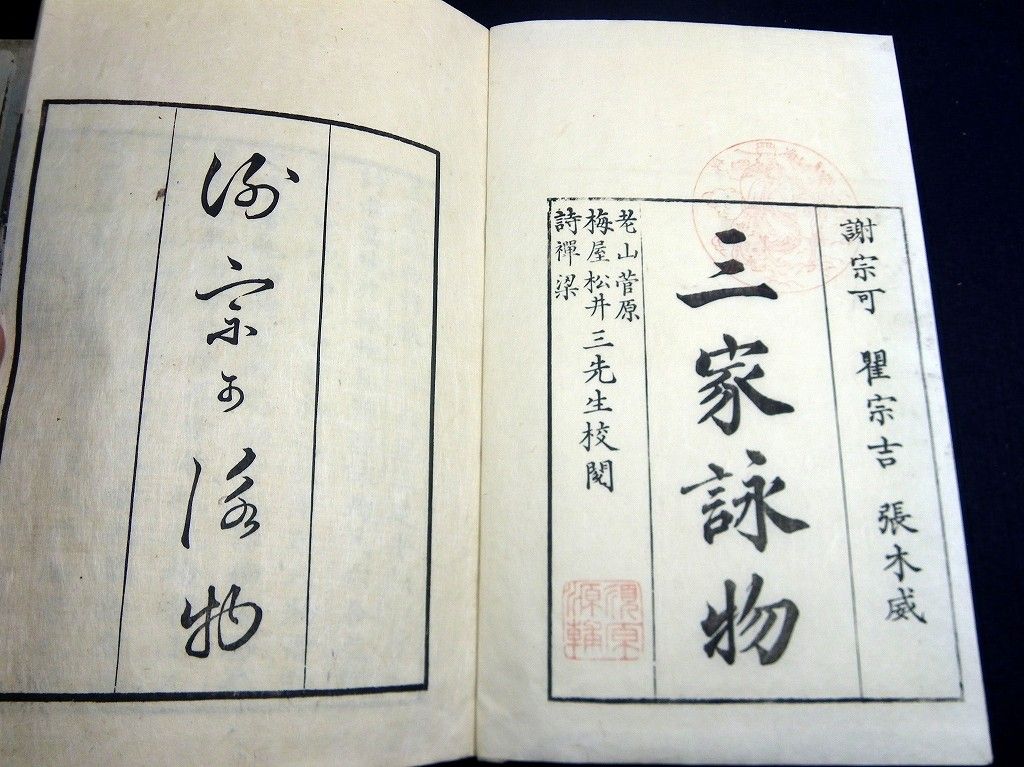 謝宗可 瞿宗吉 張木威
三家詠物
老山菅原
梅屋松井
詩禪梁
三先生校閱
謝宗可詠物